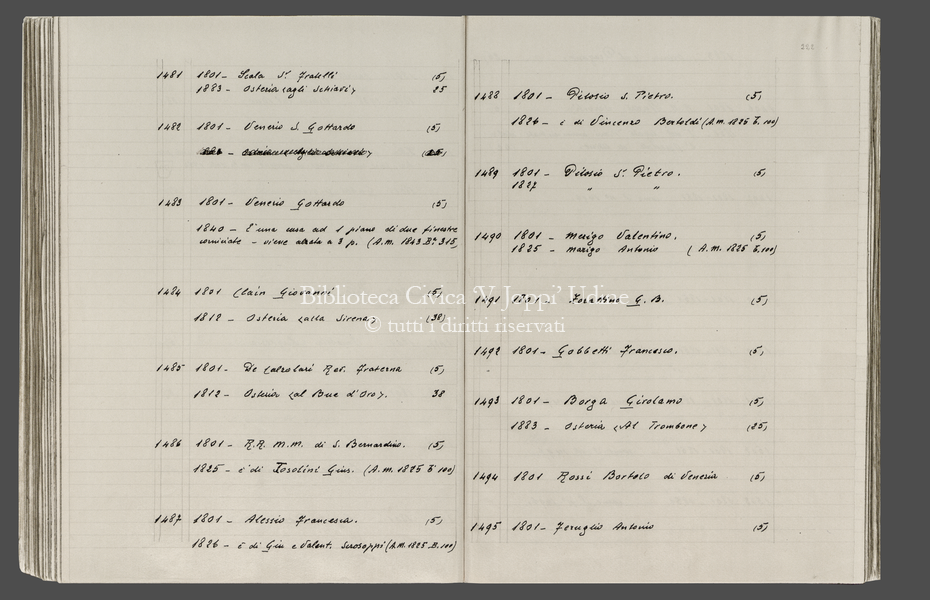 1481 1801 - Scala Sr. Fratelli (5)
1883 - Osteria <agli Schiavi> 25
1482 1801 - Venerio S. Gottardo (5)
1483 1801 - Venerio Gottardo (5)
1840 - È una casa ad 1 piano di due finestre
corniciate - viene alzata a 3 p. (A.m. 1843 Bª 315)
1484 1801 Clain Giovanni (5)
1812 - Osteria <alla Sirena> (38)
1485 1801 - De Calzolari Rev. Fraterna (5)
1812 - Osteria <al Bue d'Oro>. 38
1486 1801 - R.R. M.M. di S. Bernardino. (5)
1825 - è di Tosolini Gius. (A.m. 1825 B 100)
1487 1801 - Alessio Francesca. (5)
1826 - è di Giu e Valent. Serosoppi (A.M. 1825 B. 100)
1488 1801 - Pilosio S. Pietro. (5)
1826 - è di Vincenzo Bertoldi (A.m. 1825 B, 100)
1489 1801 - Pilosio Sr. Pietro. (5)
1827 " "
1490 1801 - Marigo Valentino. (5)
1825 - Marigo Antonio (A.m. 1825 B, 100)
1491 1801 - G. B. (5)
1492 1801 - Gobbetti Francesco. (5)
1493 1801 - Borga Girolamo (5)
1883 - Osteria <Al Trombone> (25)
1494 1801 Rossi Bortolo di Venezia (5)
1495 1801 - Feruglio Antonio (5)
Biblioteca Civica 'V. Joppi' Udine
© tutti i diritti riservati